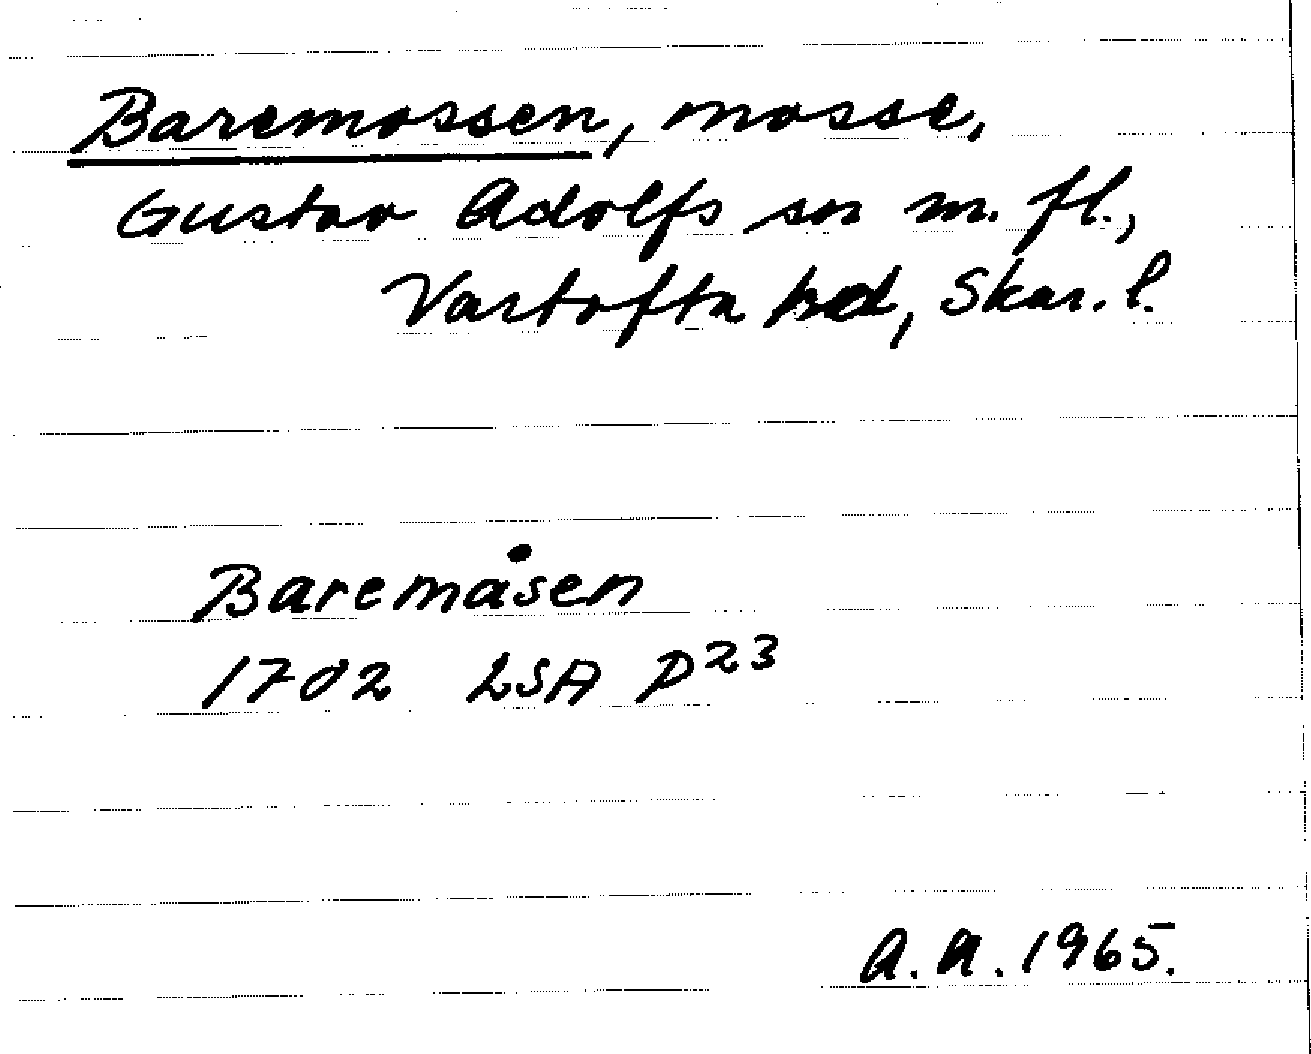 Baremossen, mosse,
Gustav Adolfs sn m. fl.,
Vartofta hd, Skar. l.
Baremåsen
1702 LSA P23
A.A. 1965.